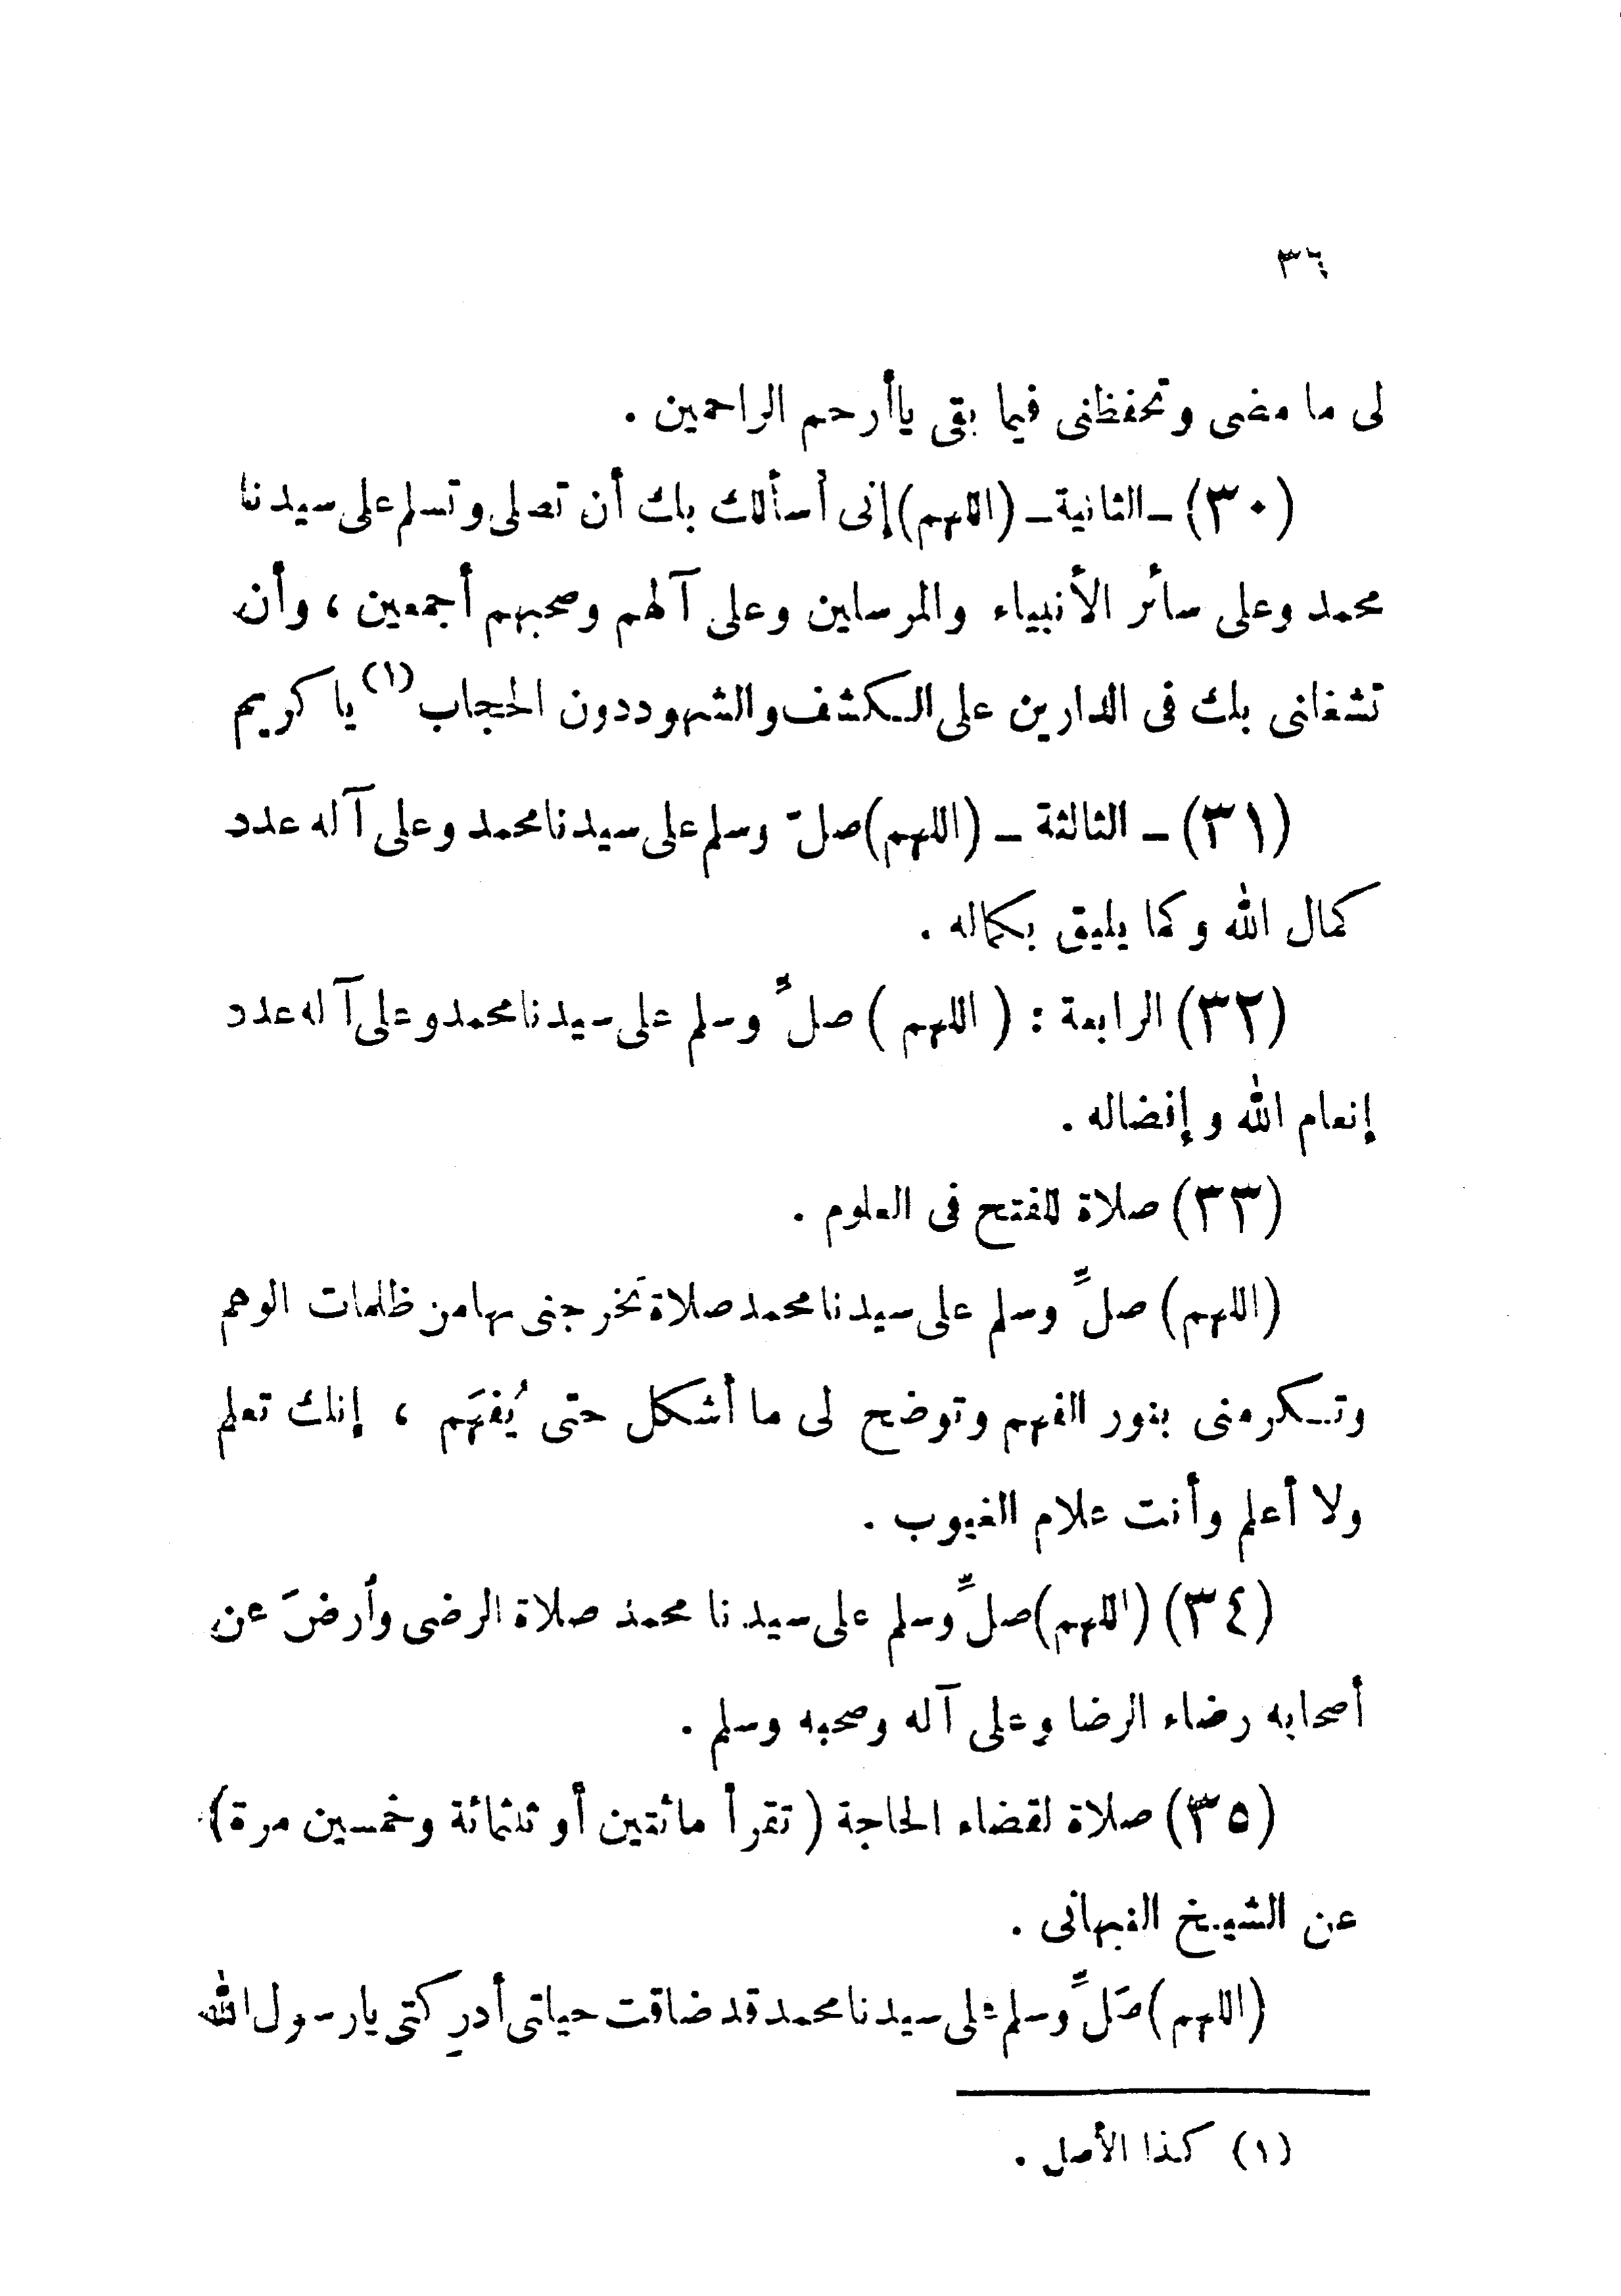 ٣٦
لى ما مضى وتحفظنى فيما بقى ياأرحم الراحمين .
(٣٠) ــ الثانية ــ (اللهم) إنى أسألك بك أن تصلى وتسلم على سيدنا
محمد وعلى سائر الأنبياء والمرسلين وعلى آلهم وصحبهم أجمعين ، وأن
تشغلنى بك فى الدارين على الكشف والشهود دون الحجاب (١) يا كريم
(٣١) ــ الثالثة ــ (اللهم) صلّ وسلم على سيدنا محمد وعلى آله عدد
كمال الله وكما يليق بكماله .
(٣٢) الرابعة : ( اللهم ) صلِّ وسلم على سيدنا محمد وعلى آله عدد
إنعام الله وإفضاله .
(٣٣) صلاة للفتح فى العلوم .
(اللهم) صلِّ وسلم على سيدنا محمد صلاة تخرجنى بها من ظلمات الوهم
وتكرمنى بنور الفهم وتوضح لى ما أشكل حتى يُفهَم ، إنك تعلم
ولا أعلم وأنت علام الغيوب .
(٣٤) (اللهم) صلِّ وسلم على سيدنا محمد صلاة الرضى وأرضَ عن
أصحابه رضاء الرضا وعلى آله وصحبه وسلم .
(٣٥) صلاة لقضاء الحاجة ( تقرأ مائتين أو ثلثمائة وخمسين مرة)
عن الشيخ النبهانى .
(اللهم) صَلِّ وسلم على سيدنا محمد قد ضاقت حياتى أدرِكنى يارسول الله
(١) كذا الأصل .